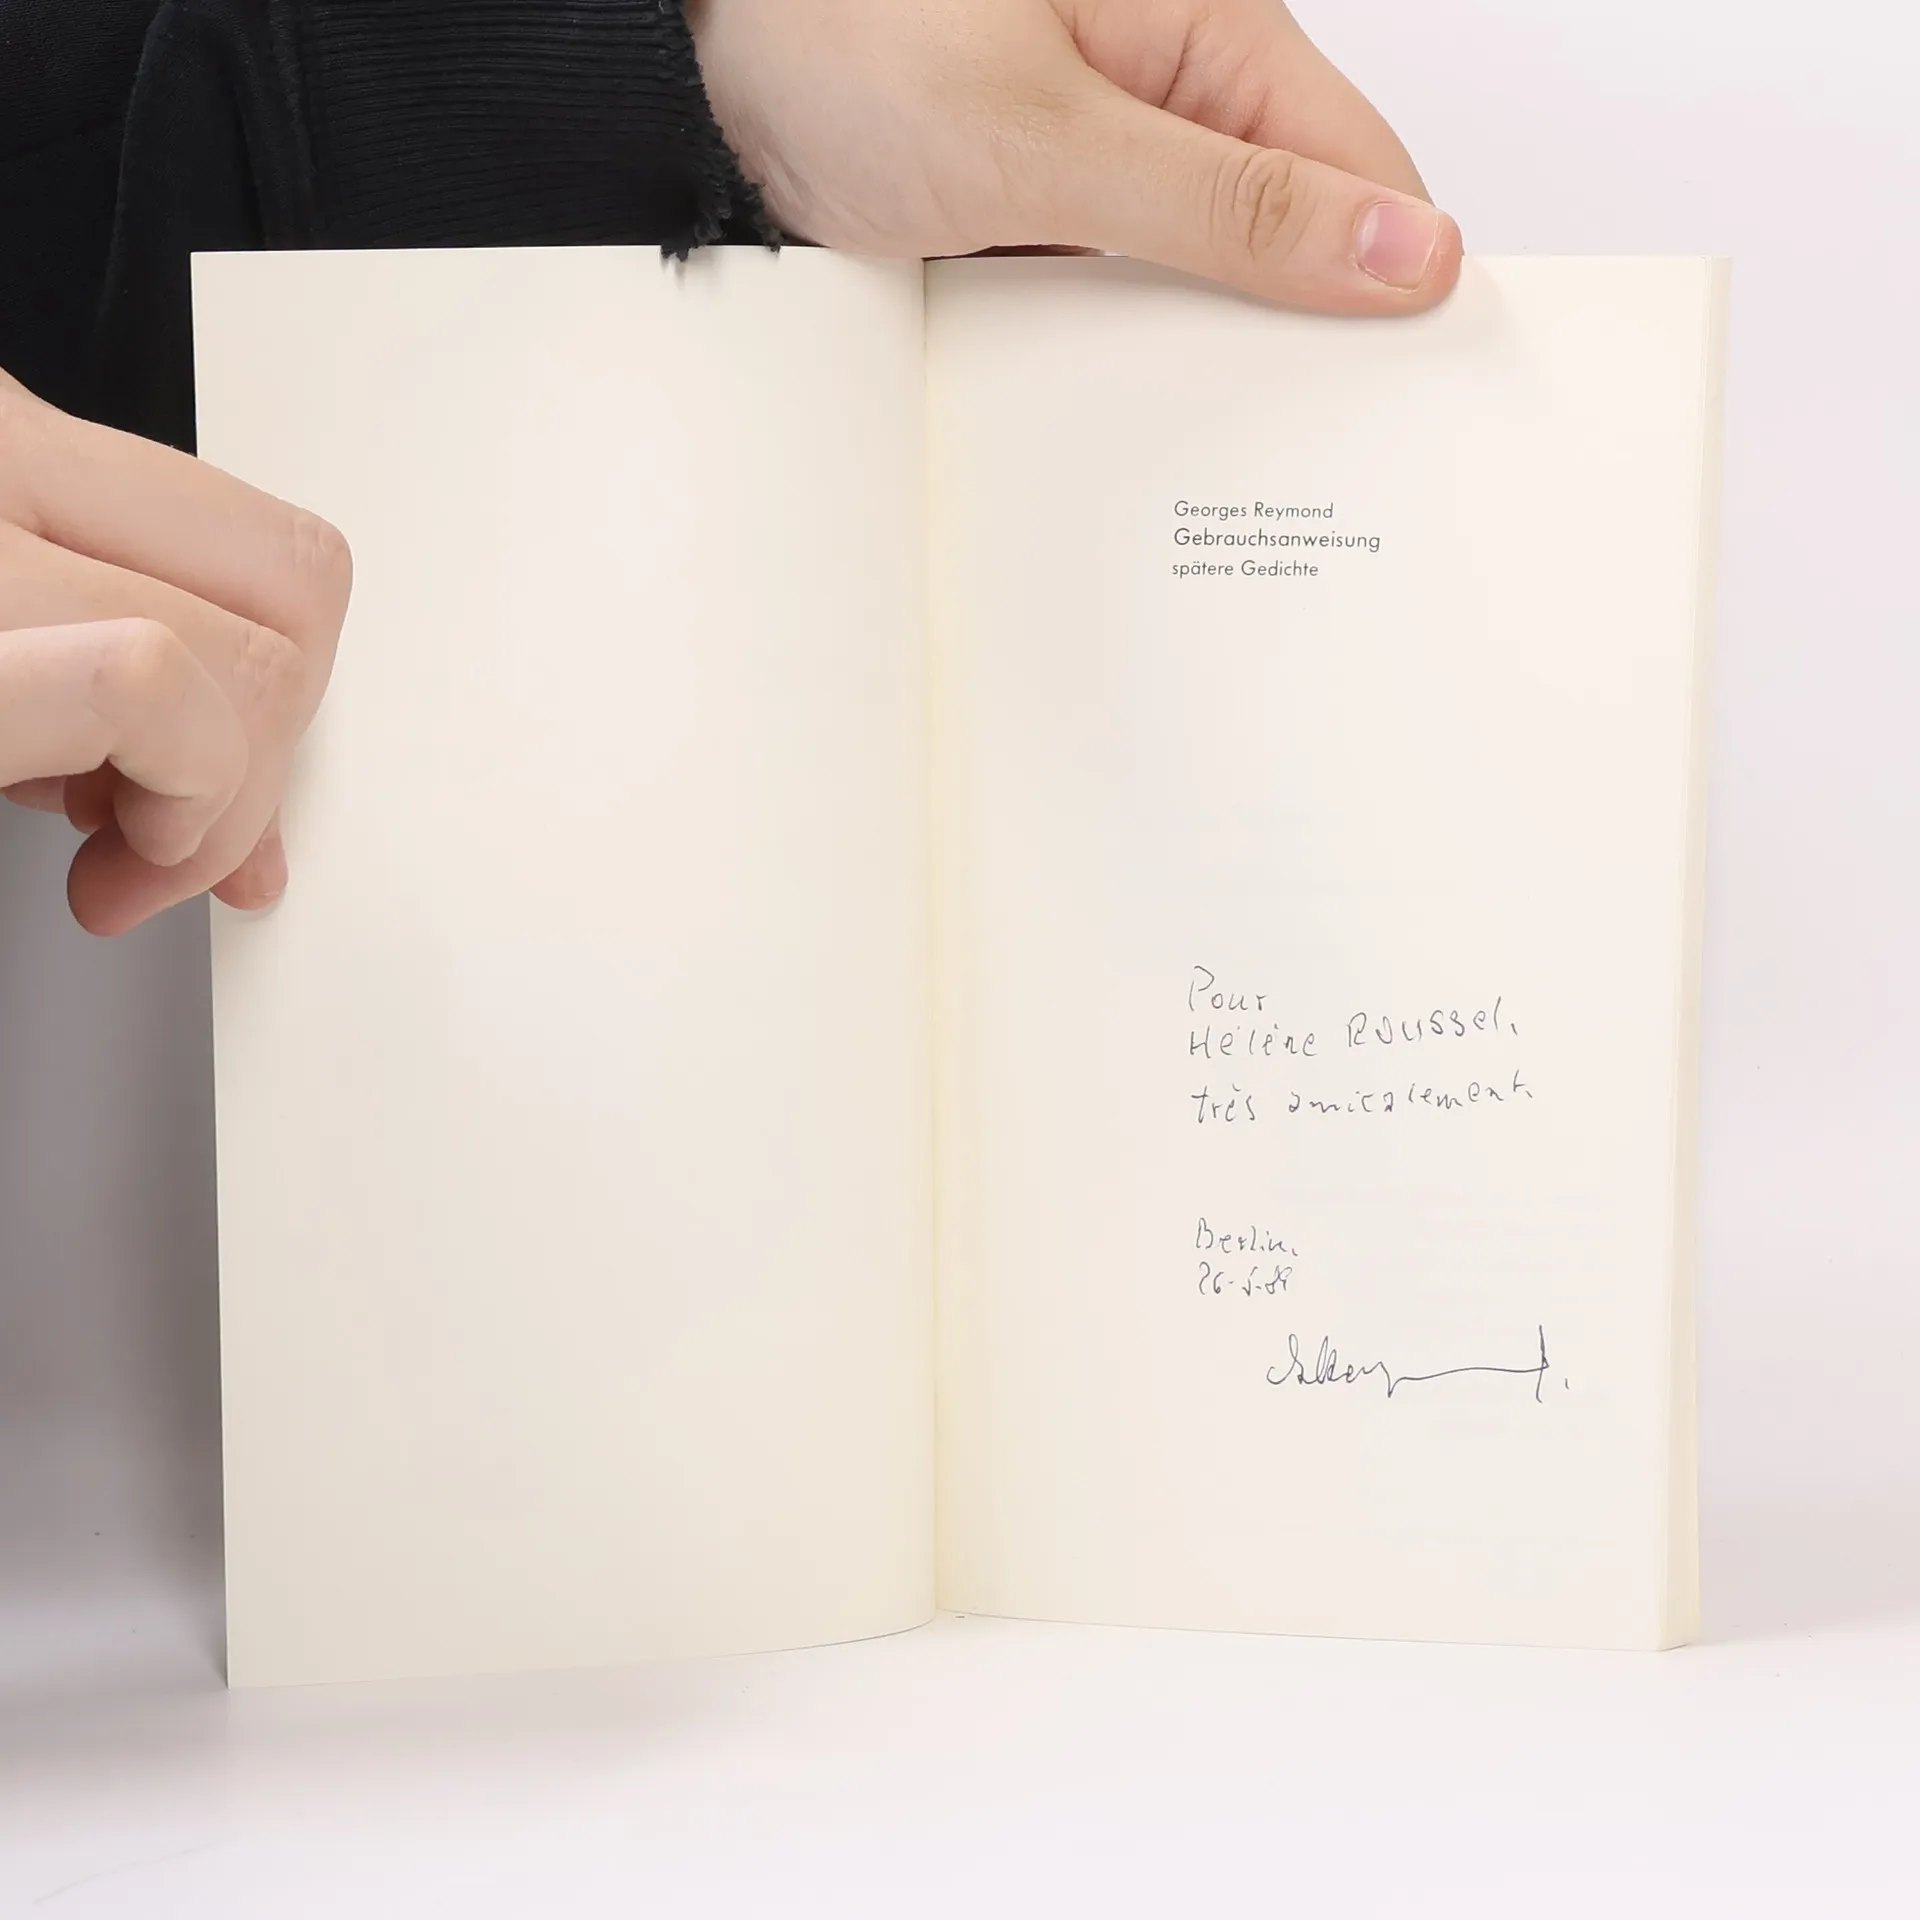 Georges Reymond
Gebrauchsanweisung
spätere Gedichte
Pour
Hélène Roussel,
très amicalement.
Berlin,
26-5-89